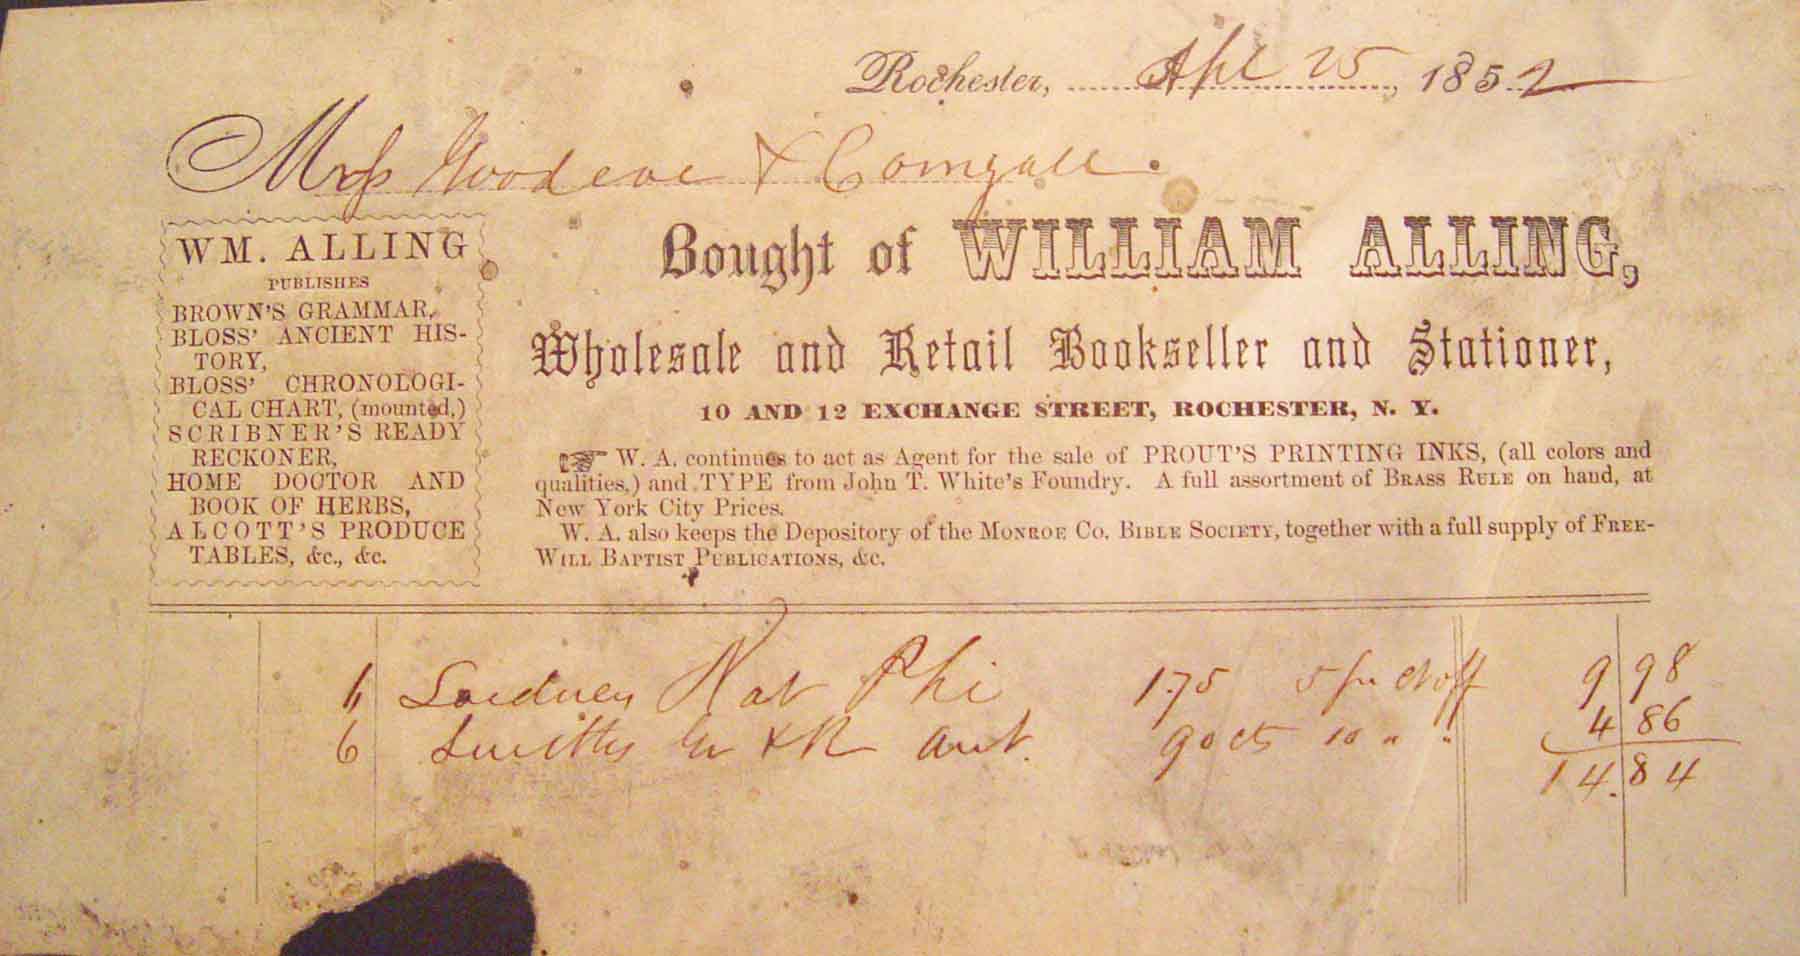 Rochester, Apl 25, 1852
Mess &
WM. ALLING
PUBLISHES
BROWN'S GRAMMAR,
BLOSS' ANCIENT HIS-
TORY,
BLOSS' CHRONOLOGI-
CAL CHART, (mounted,)
SCRIBNER'S READY
RECKONER,
HOME DOCTOR AND
BOOK OF HERBS,
ALCOTT'S PRODUCE
TABLES, &c., &c.
Bought of WILLIAM ALLING,
Wholesale and Retail Bookseller and Stationer,
10 AND 12 EXCHANGE STREET, ROCHESTER, N. Y.
☞ W. A. continues to act as Agent for the sale of PROUT'S PRINTING INKS, (all colors and
qualities,) and TYPE from John T. White's Foundry. A full assortment of BRASS RULE on hand, at
New York City Prices.
W. A. also keeps the Depository of the MONROE CO. BIBLE SOCIETY, together with a full supply of FREE-
WILL BAPTIST PUBLICATIONS, &c.
6 Nat Phi 1.75 5 pr ct off 9 98
6 Smiths Gr & R 90 cts 10 " " 4 86
14.84